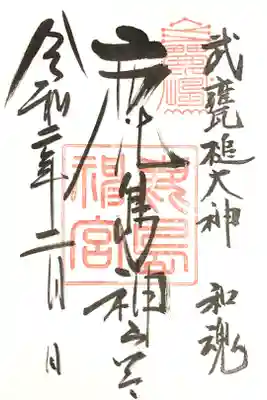 武甕槌大神 和魂
鹿島神宮
令和二年二月 日
鹿島
神宮